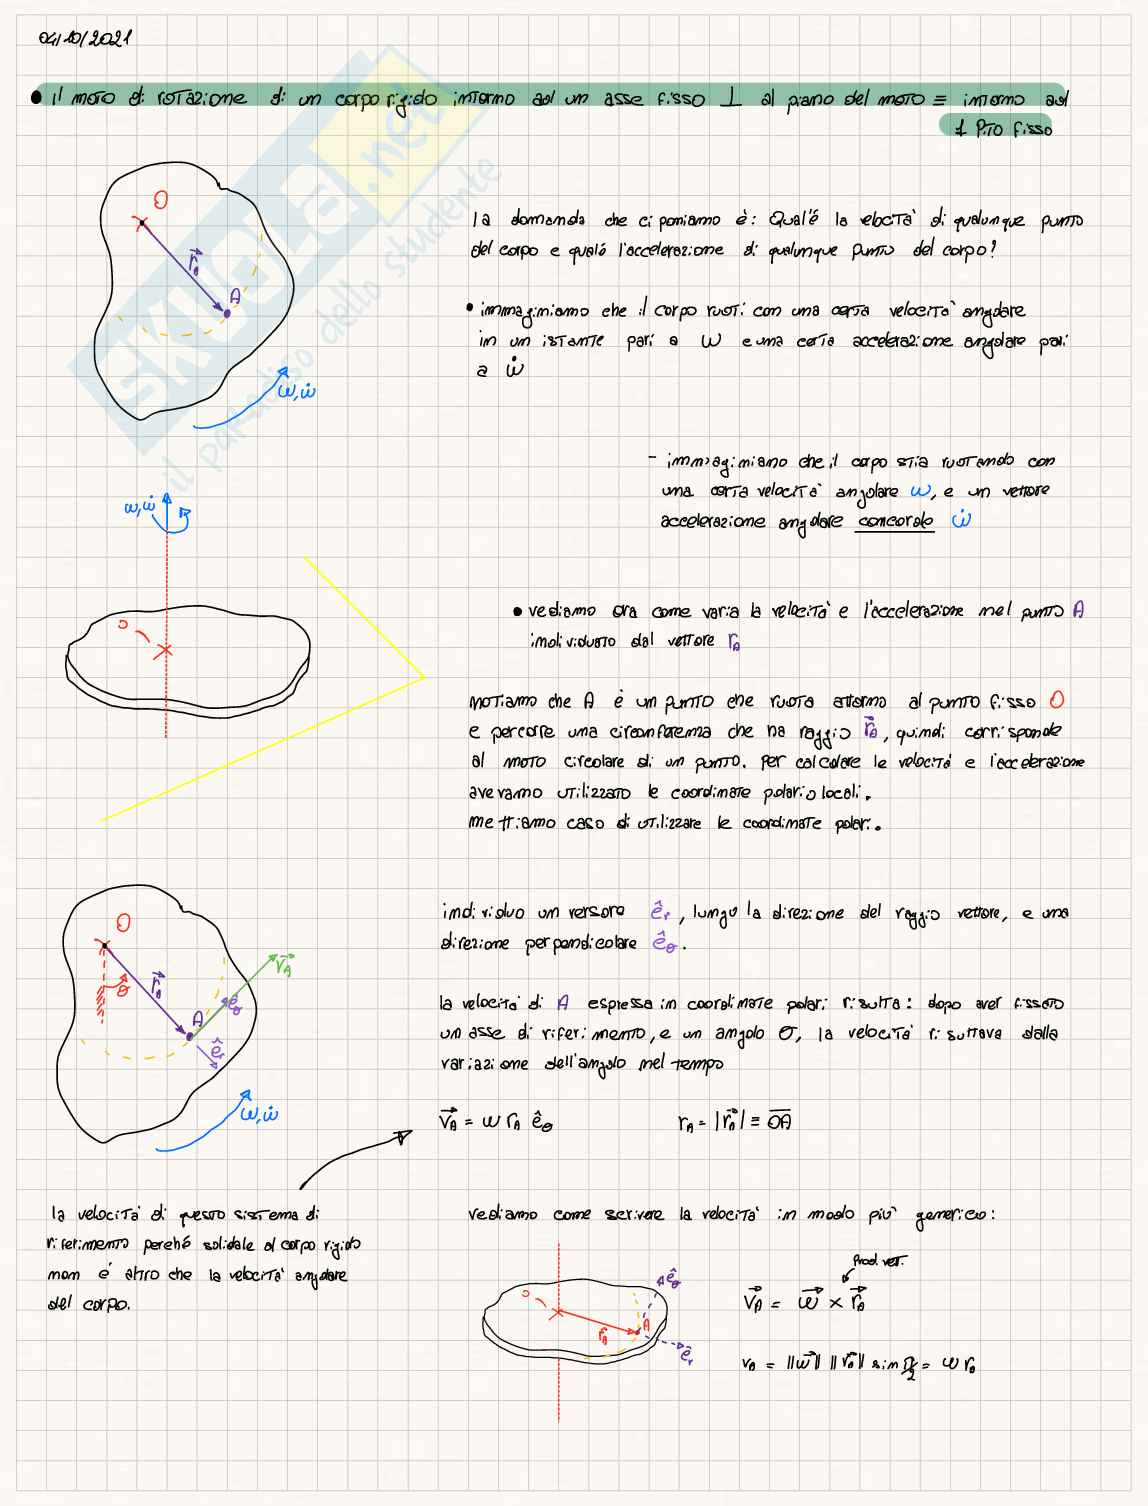 04/10/2021
• il moto di rotazione di un corpo rigido intorno ad un asse fisso ⊥ al piano del moto ≡ intorno ad
1 P.TO fisso
SKUOLA.net
il paradiso dello studente
O
r⃗A
A
ω, ω̇
la domanda che ci poniamo è: Qual'è la velocità di qualunque punto
del corpo e qualé l'accelerazione di qualunque punto del corpo?
• immaginiamo che il corpo ruoti con una certa velocità angolare
in un istante pari a ω e una certa accelerazione angolare pari
a ω̇
- immaginiamo che il corpo stia ruotando con
una certa velocità angolare ω, e un vettore
accelerazione angolare concorde ω̇
ω, ω̇
O
• vediamo ora come varia la velocità e l'accelerazione nel punto A
individuato dal vettore rA
notiamo che A è un punto che ruota attorno al punto fisso O
e percorre una circonferenza che ha raggio r⃗A, quindi corrisponde
al moto circolare di un punto. Per calcolare le velocità e l'accelerazione
avevamo utilizzato le coordinate polari o locali.
mettiamo caso di utilizzare le coordinate polari.
O
θ
r⃗A
A
v⃗A
êθ
êr
ω, ω̇
individuo un versore êr, lungo la direzione del raggio vettore, e una
direzione perpendicolare êθ.
la velocità di A espressa in coordinate polari risulta: dopo aver fissato
un asse di riferimento, e un angolo θ, la velocità risultava dalla
variazione dell'angolo nel tempo
v⃗A = ω rA êθ
rA = |r⃗A| ≡ O̅A̅
la velocità di questo sistema di
riferimento perché solidale al corpo rigido
non è altro che la velocità angolare
del corpo.
vediamo come scrivere la velocità in modo più generico:
O
r⃗A
A
êθ
êr
Prod. vett.
v⃗A = ω⃗ × r⃗A
vA = ||ω⃗|| ||r⃗A|| sin π/2 = ω rA